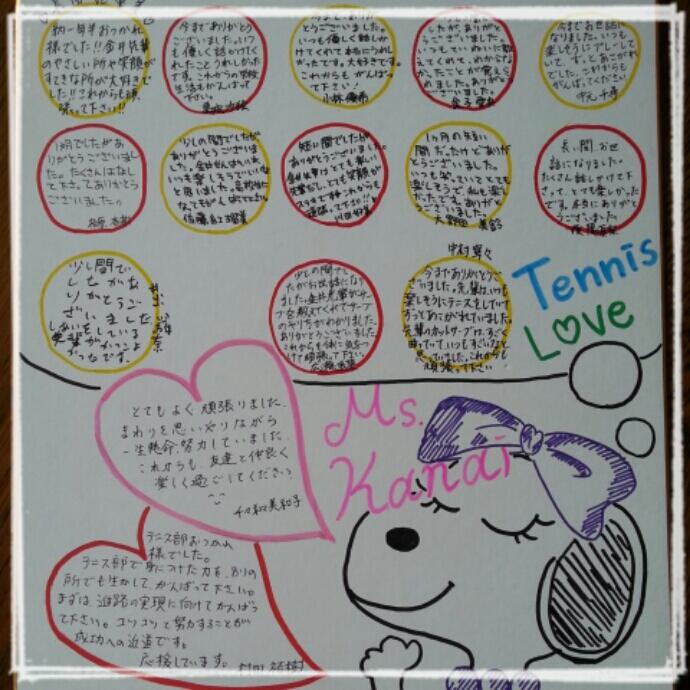 約一年半おつかれ
様でした!!金井先輩
のやさしい所や笑顔が
すてきな所が大好きで
した!!これからも頑
張って下さい!!
今までありがとう
ございました。いつ
も優しく話かけてく
れたこと うれしかった
です。これからの学校
生活もがんばって
下さい。
ございました。
いつも優しく話しか
けてくれて本当にうれし
かったです。大好きです。
これからも がんばっ
て下さい!
小林 優希
ありがとう
ございました。
いつもていねいに教
えてくれて、わからな
かったことが覚えら
れました。ありがとう
ございました。
今までお世話に
なりました。いつも
楽しそうにプレーして
いて、ずっとあこがれ
でした。これからも
がんばってください
1ヶ月でしたがあ
りがとうございまし
た。たくさんはなし
て下さってありがとう
ございました。
少しの間でしたが
ありがとうございま
した。
いつも楽しそうでいいな
と思いました。高校生に
なってもがんばって下さい
短い間でしたが
ありがとうございました。
これからも
頑張って下さい!!
1ヶ月の短い
間だったけどありが
とうございました。
いつも笑っていてとても
楽しそうで、私も楽し
かったです。ありがと
うございました。
長い間、お世
話になりました。
たくさん話しかけて下
さって、とても楽しかった
です。本当にありがと
うございました。
少し間で
したがあ
りがとうご
ざいました
しあいをしている
先輩がかっこよ
かったです。
少しの間でし
たがお世話になり
ました。金井先輩がサー
ブを教えてくれてサーブ
のやり方がわかりました。
ありがとうございました。
これからも体に気をつ
けて頑張って下さい。
中村 寧々
今までありがとうご
ざいました。先輩はいつも
楽しそうにテニスをしていて
ずっとあこがれていました。
先輩のカットサーブは、すごく
曲がっていていつもすごいなと
思っていました。これからも
頑張って下さい
Tennis
Love
とてもよく頑張りました。
まわりを思いやりながら
一生懸命、努力していました。
これからも、友達と仲良く
楽しく過ごしてください
Ms.
Kanai
テニス部おつかれ
様でした。
テニス部で身につけた力を、別の
所でも生かして、がんばって下さい。
まずは、進路の実現に向けてがんばっ
て下さい。コツコツと努力することが
成功への近道です。
応援しています。 村田 祐樹